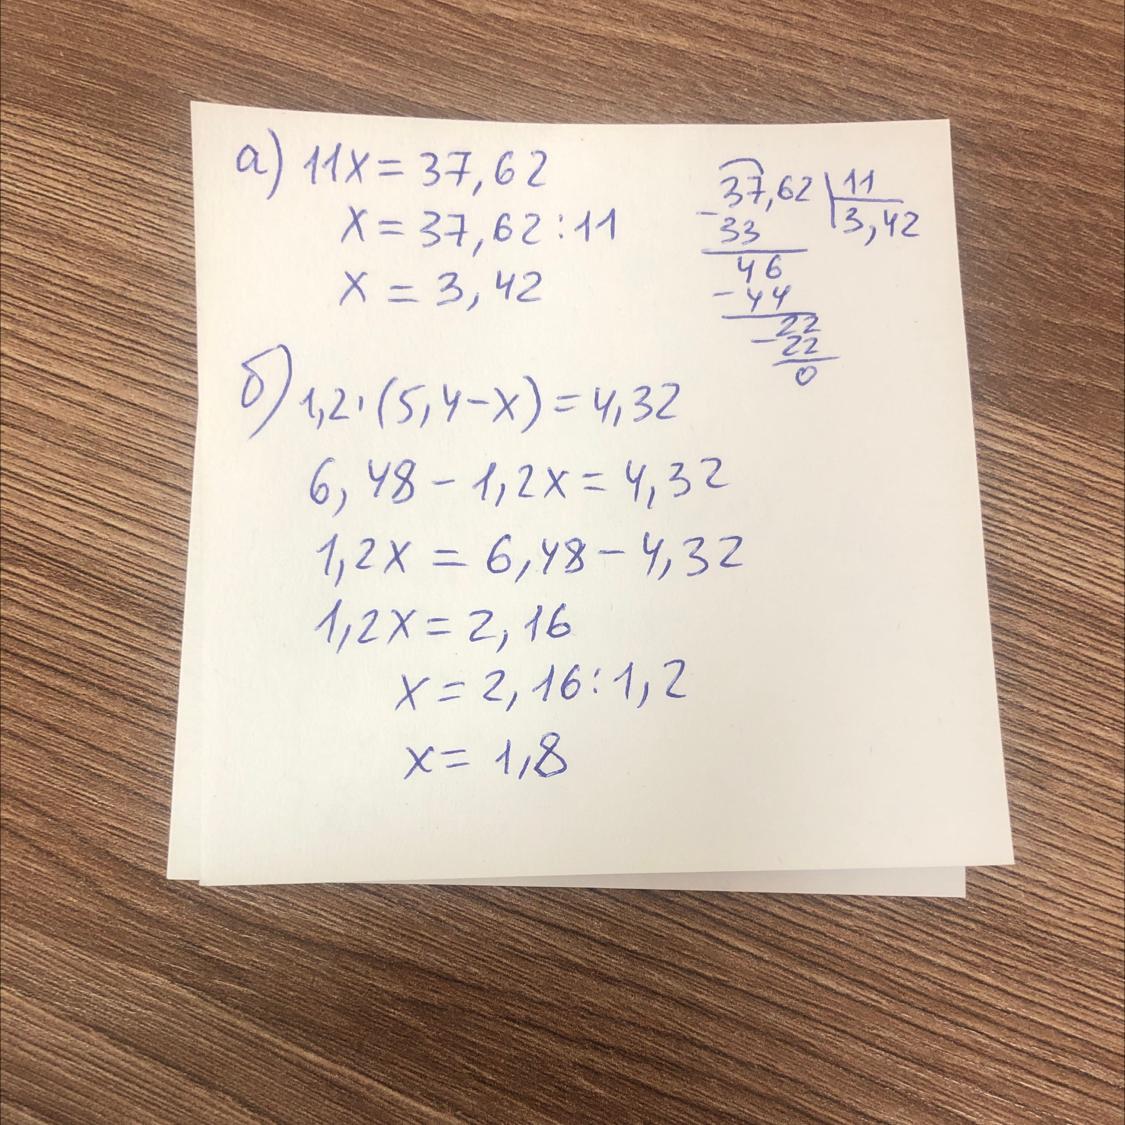 а) 11x = 37,62
x = 37,62 : 11
x = 3,42
37,62 | 11
- 33 | 3,42
46
- 44
22
- 22
0
б) 1,2 · (5,4 - x) = 4,32
6,48 - 1,2x = 4,32
1,2x = 6,48 - 4,32
1,2x = 2,16
x = 2,16 : 1,2
x = 1,8